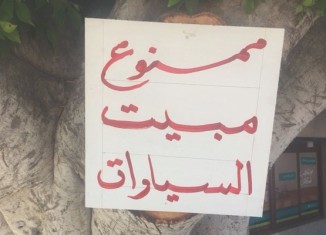 ممنوع
مبيت
السيارات